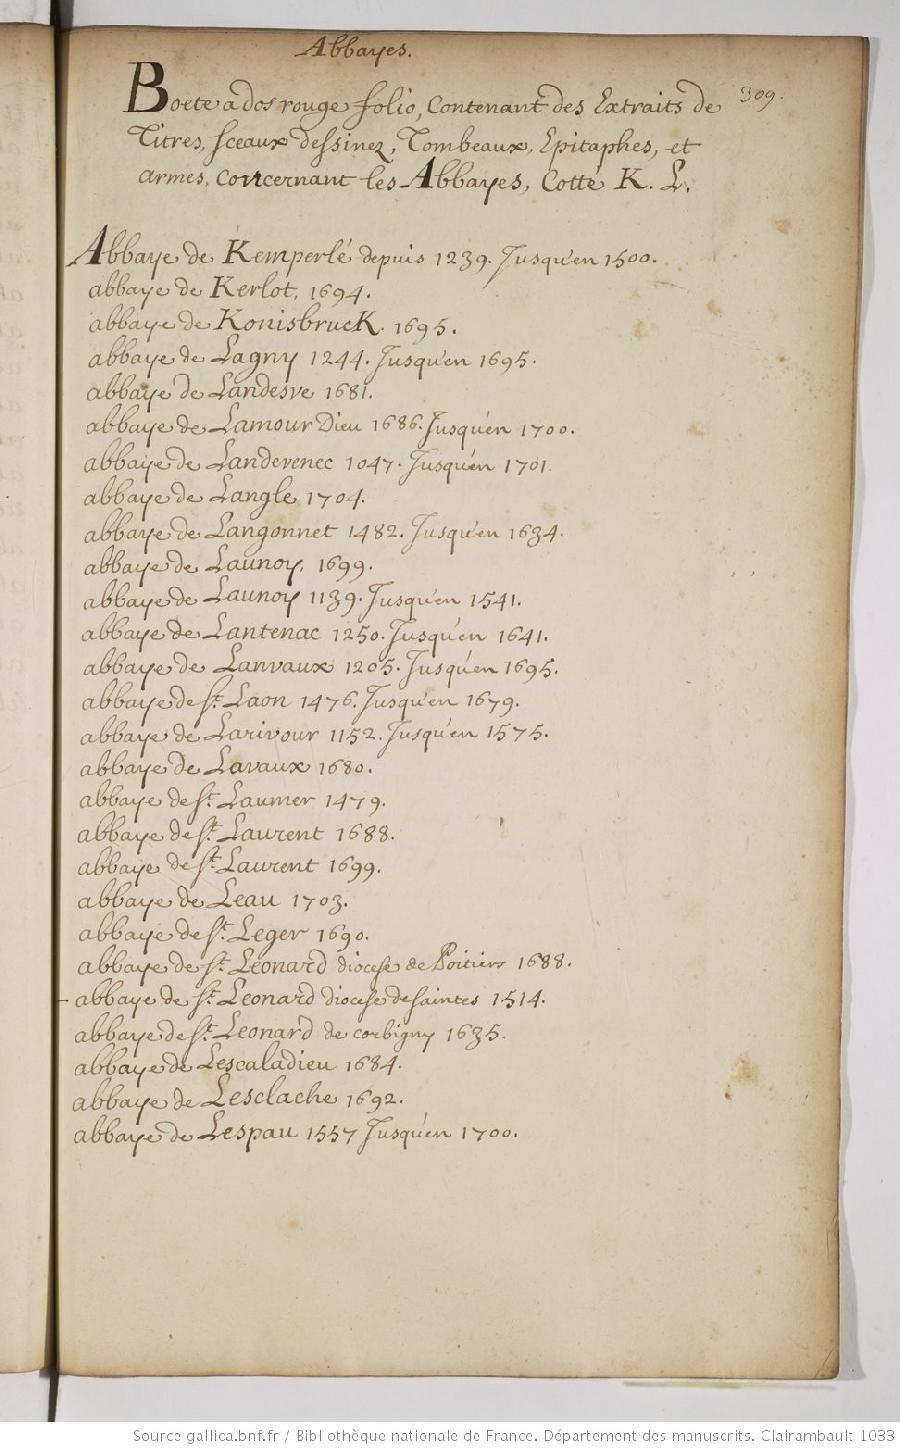 Abbayes.
309.
Boete a dos rouge folio, Contenant des Extraits de
Titres, sceaux dessinez, Tombeaux, Epitaphes, et
armes, concernant les Abbayes, Cotte K. L.
Abbaye de Kemperlé depuis 1239. Jusqu'en 1500.
abbaye de Kerlot, 1694.
abbaye de Konisbruck. 1695.
abbaye de Lagny 1244. Jusqu'en 1695.
abbaye de Landesve 1681.
abbaye de Lamour Dieu 1686. Jusqu'en 1700.
abbaye de Landevenec 1047. Jusqu'en 1701.
abbaye de Langle 1704.
abbaye de Langonnet 1482. Jusqu'en 1634.
abbaye de Launoy, 1699.
abbaye de Launoy 1139. Jusqu'en 1541.
abbaye de Lantenac 1250. Jusqu'en 1641.
abbaye de Lanvaux 1205. Jusqu'en 1695.
abbaye de St. Laon 1476. Jusqu'en 1679.
abbaye de Larivour 1152. Jusqu'en 1575.
abbaye de Lavaux 1680.
abbaye de St. Laumer 1479.
abbaye de St. Laurent 1688.
abbaye de St. Laurent 1699.
abbaye de Leau 1703.
abbaye de St. Leger 1690.
abbaye de St. Leonard diocese de Poitiers 1688.
abbaye de St. Leonard diocese de saintes 1514.
abbaye de St. Leonard de corbigny 1635.
abbaye de Lescaladieu 1684.
abbaye de Lesclache 1692.
abbaye de Lespau 1557 Jusqu'en 1700.
Source gallica.bnf.fr / Bibliothèque nationale de France. Département des manuscrits. Clairambault 1033